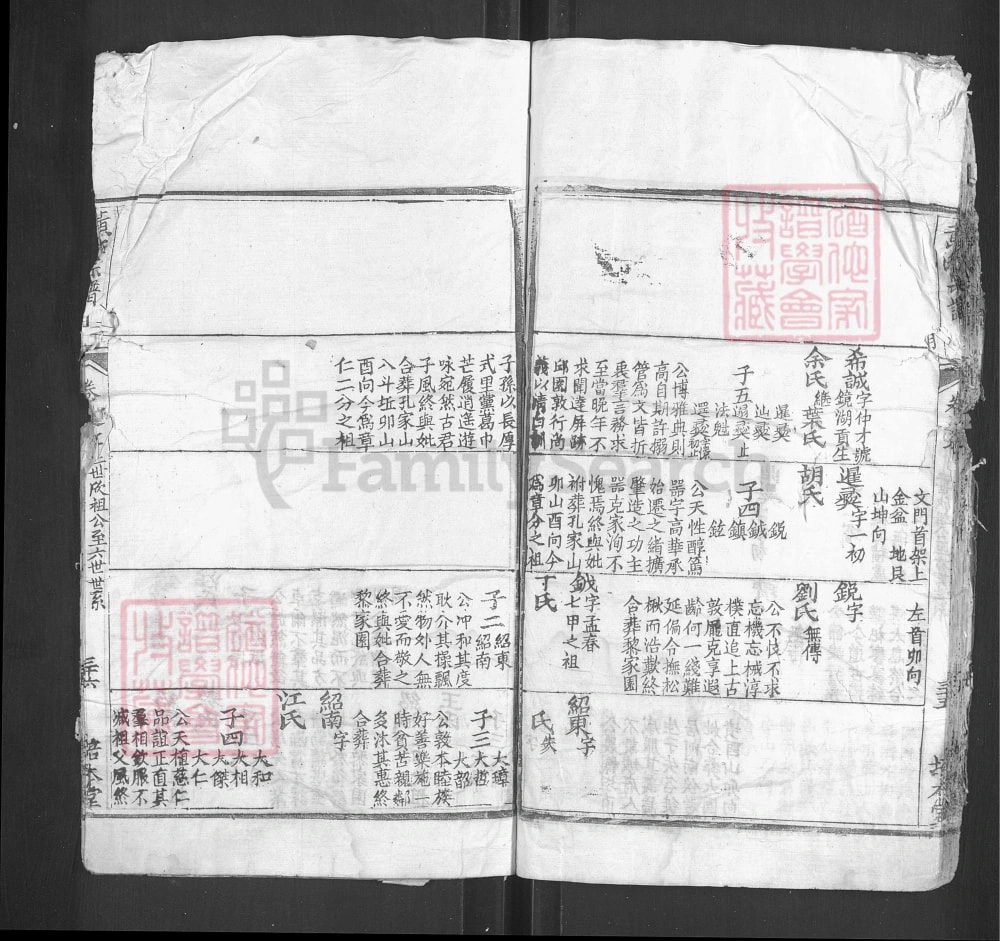 文門首架上
金盆 地艮
山坤向
左首卯向
希誠字仲才號
鏡湖貢生
余氏繼葉氏
暹奭
汕奭
子五遏奭止
法魁
還奭
公博雅典則
高自期許弱
管爲文皆折
衷羣言務求
至當晚年不
求聞達屏跡
邱園敦行尚
義以清白訓
子孫以長厚
式里黨葛巾
芒履逍遙遊
咏宛然古君
子風終與妣
合葬孔家山
八斗坵卯山
酉向今爲章
仁二分之祖
暹奭字一初
胡氏
銳
鉞
子四鎮
鉉
公天性醇篤
器宇高華承
始遷之緒擴
肇造之功主
器克家洵不
愧焉終與妣
祔葬孔家山
卯山酉向今
爲章分之祖
銳字
劉氏 無傳
公不忮不求
忘機忘械淳
樸直追上古
敦龐克享遐
齡何一綫難
延偏合撫松
楸而浩歎終
合葬黎家園
鉞字孟春
七甲之祖
丁氏
子二紹東
紹南
公冲和其度
耿介其樣飄
然物外人無
不愛而敬之
終與妣合葬
黎家園
紹東字
氏失
大璋
子三大哲
大部
公敦本睦族
好善樂施一
時貧苦親鄰
多沐其惠終
合葬黎家園
紹南字
江氏
大和
大相
子四大傑
大仁
公天植慈仁
品誼正直其
羣相欽服不
減祖父風終
卷
世成祖公至六世世系
三六
三五
敦本堂
FamilySearch